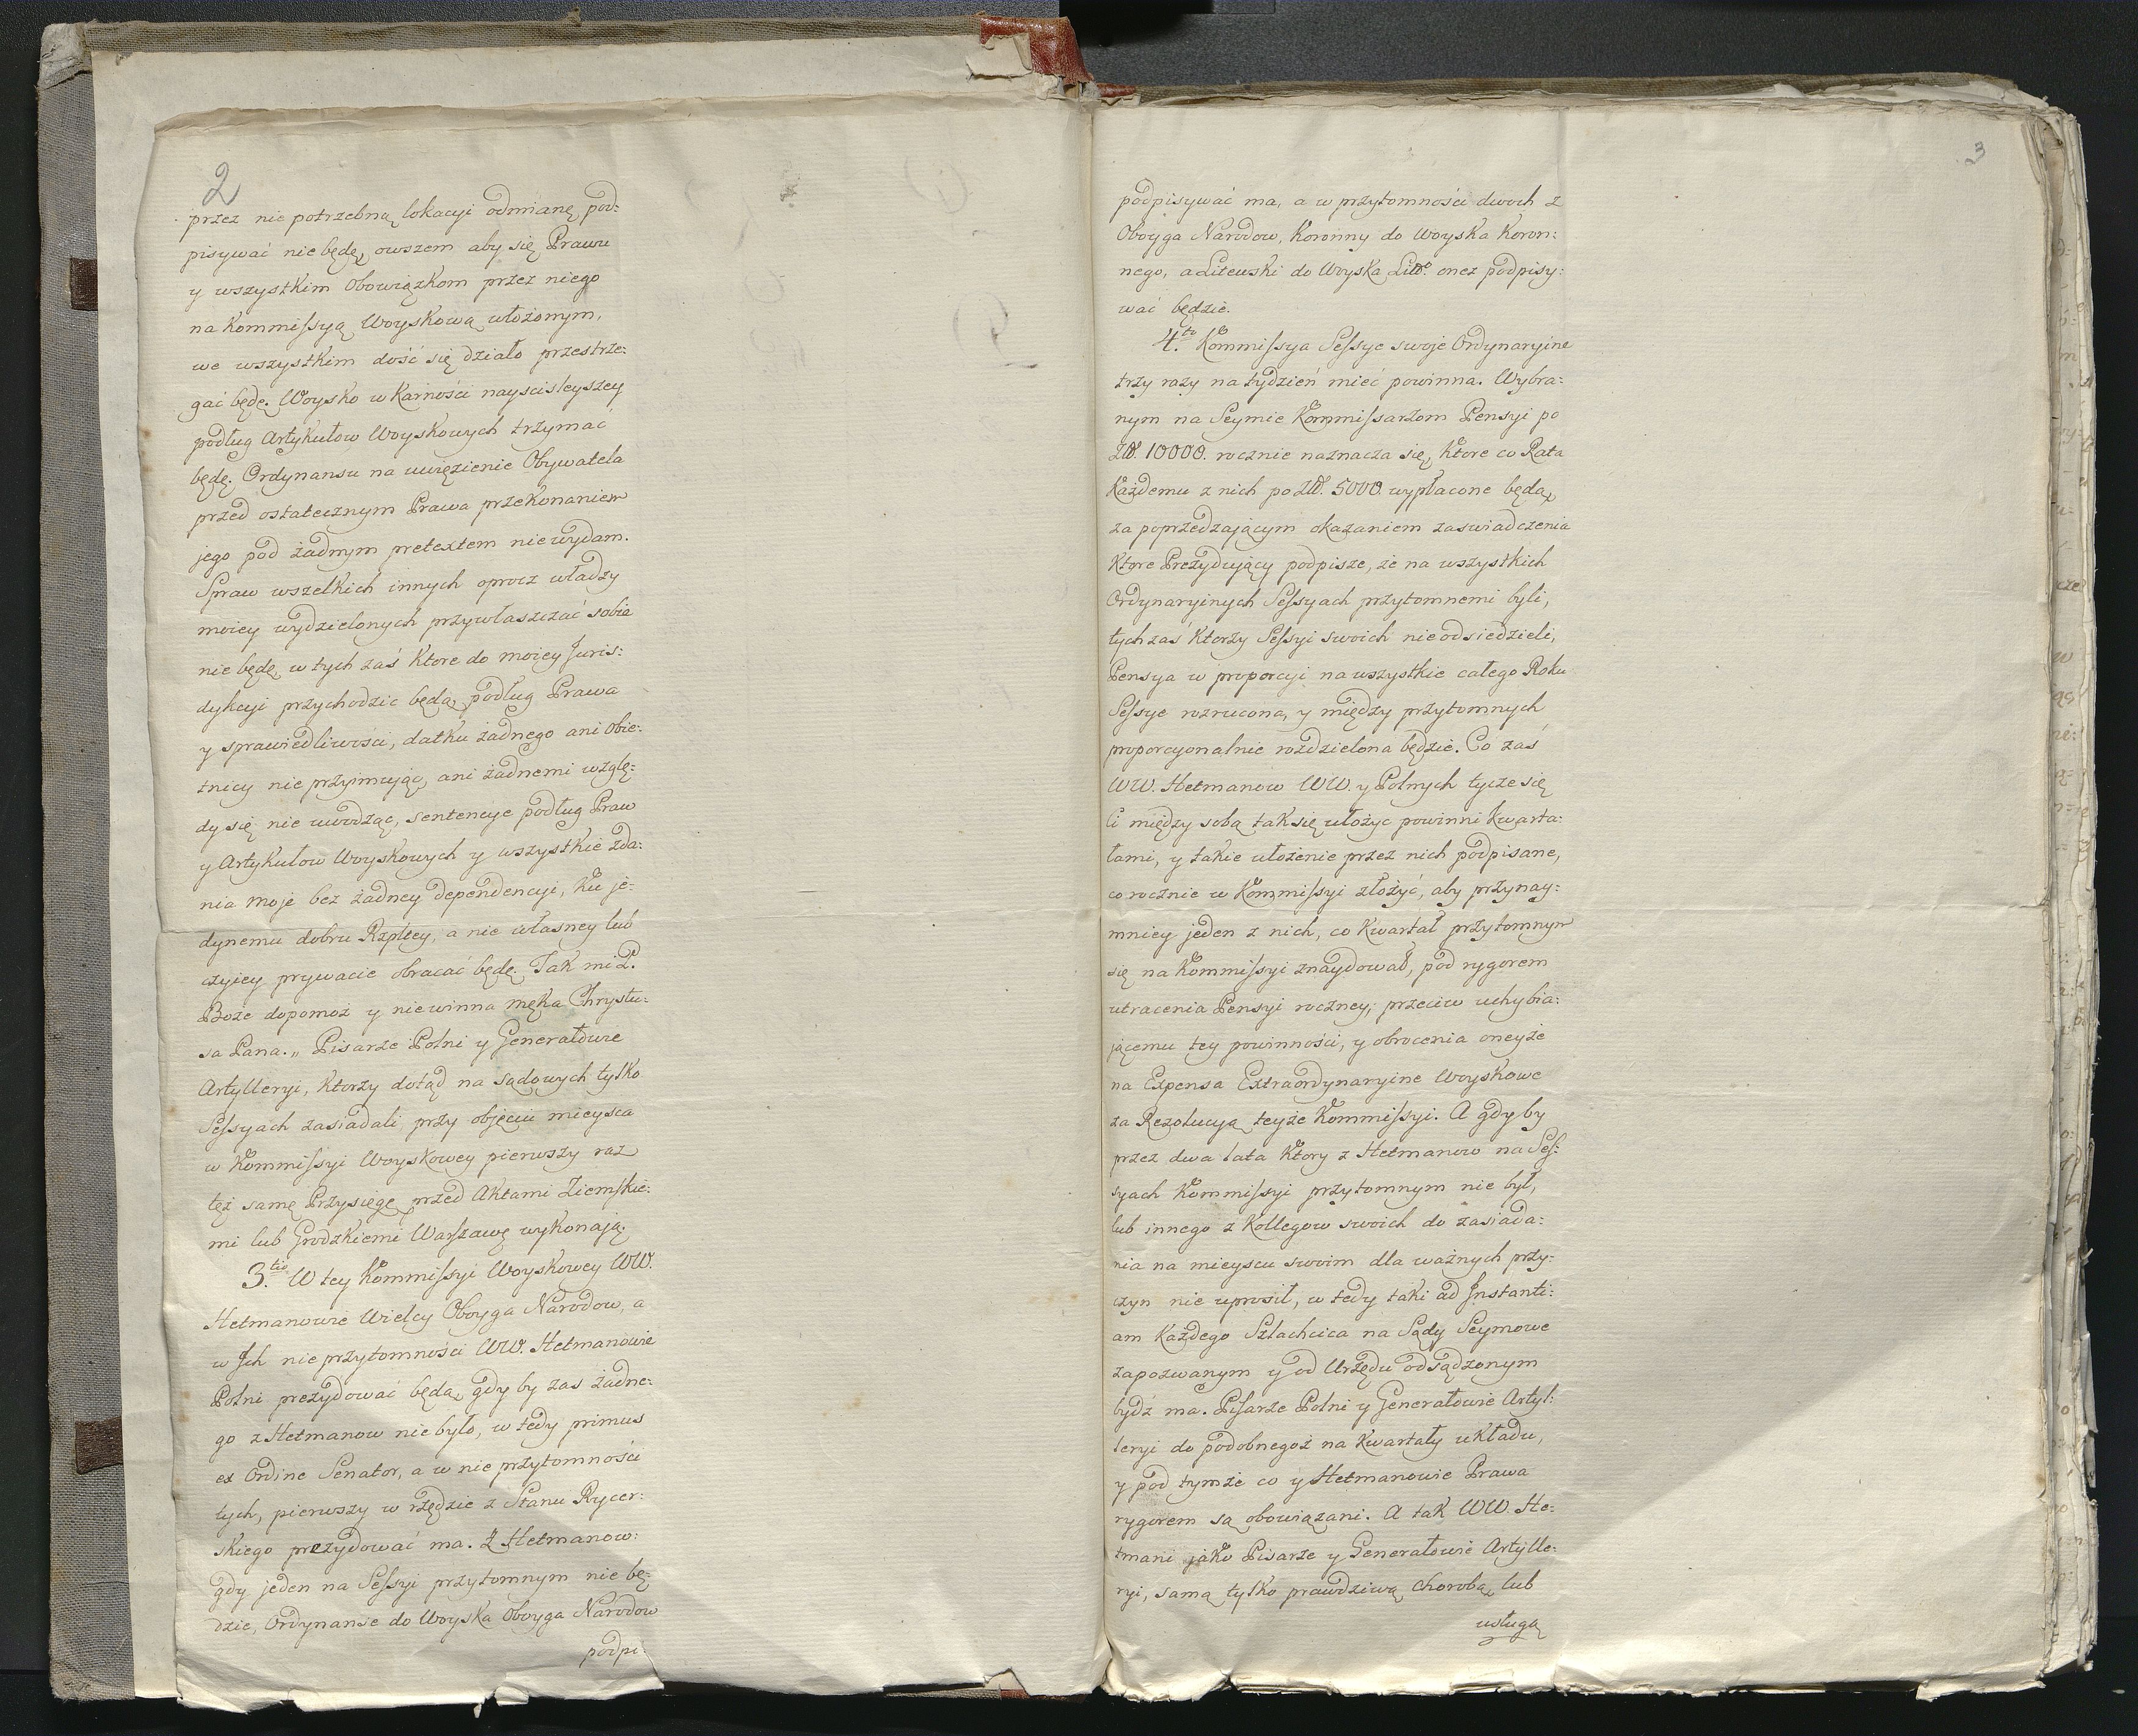 2
przez nie potrzebną lokacyi odmianę pod:
pisywać nie będę, owszem aby się Prawu
y wszystkim Obowiązkom przez niego
na Kommissyą Woyskową ułożonym,
we wszystkim dość się działo przestrze:
gać będę. Woysko w Karności nayscisleyszey
podług Artykułow Woyskowych trzymać
będę. Ordynansu na uwięzienie Obywatela
przed ostatecznym Prawa przekonaniem
jego pod żadnym pretextem nie wydam.
Spraw wszelkich innych oprocz władzy
moiey wydzielonych przywłaszczać sobie
nie będę, w tych zaś Ktore do moiey Juris:
dykcyi przychodzic będą, podług Prawa
y sprawiedliwosci, datku żadnego ani Obie:
tnicy nie przyimując, ani żadnemi wzglę:
dy się nie uwodząc, sentencye podług Praw
y Artykułow Woyskowych y wszystkie zda:
nia moje bez żadney dependencyi, Ku je:
dynemu dobru Rzpltey, a nie własney lub
czyiey prywacie obracać będę. Tak mi P.
Boże dopomoż y niewinna męka Chrystu:
sa Pana.„ Pisarze Polni y Generałowie
Artylleryi, Ktorzy dotąd na sądowych tylko
Sessyach zasiadali, przy objęciu mieysca
w Kommissyi Woyskowey pierwszy raz
też samę Przysięgę przed Aktami Ziemskie:
mi lub Grodzkiemi Warszawę wykonają.
3.tio W tey Kommissyi Woyskowey WW.
Hetmanowie Wielcy Oboyga Narodow, a
w Jch nie przytomności WW. Hetmanowie
Polni prezydować będą, gdy by zas żadne:
go z Hetmanow nie było, w tedy primus
ex Ordine Senator, a w nie przytomności
tych, pierwszy w rzędzie z Stanu Rycer:
skiego prezydować ma. Z Hetmanow:
gdy jeden na Sessyi przytomnym nie bę:
dzie, Ordynanse do Woyska Oboyga Narodow
podpi:
3
podpisywać ma, a w przytomności dwoch z
Oboyga Narodow, Koronny do Woyska Koron:
nego, a Litewski do Woyska Litto. onez podpisy:
wać będzie.
4.to Kommissya Sessye swoje Ordynaryine
trzy razy na tydzień mieć powinna. Wybra:
nym na Seymie Kommissarzom Pensyi po
Złł. 10000. rocznie naznacza się, Ktore co Rata
Każdemu z nich po Złł. 5000. wypłacone będą,
za poprzedzającym okazaniem zaswiadczenia
Ktore Prezydujący podpisze, że na wszystkich
Ordynaryinych Sessyach przytomnemi byli,
tych zaś Ktorzy Sessyi swoich nie odsiedzieli,
Pensya w proporcyi na wszystkie całego Roku
Sessye rozrucona, y między przytomnych
proporcyonalnie rozdzielona będzie. Co zaś
WW. Hetmanow WW. y Polnych tycze się
Ci między sobą tak się ułożyc powinni Kwarta:
łami, y takie ułożenie przez nich podpisane,
co rocznie w Kommissyi złożyć, aby przynay:
mniey jeden z nich, co Kwartał przytomnym
się na Kommissyi znaydował, pod rygorem
utracenia Pensyi roczney, przeciw uchybia:
jącemu tey powinności, y obrocenia oneyże
na Expensa Extraordynaryine Woyskowe
za Rezolucyą teyże Kommissyi. A gdy by
przez dwa lata Ktory z Hetmanow na Ses:
syach Kommissyi przytomnym nie był,
lub innego z Kollegow swoich do zasiada:
nia na mieyscu swoim dla ważnych przy:
czyn nie uprosił, w tedy taki ad Jnstanti:
am Każdego Szlachcica na Sądy Seymowe
zapozwanym y od Urzędu odsądzonym
bydź ma. Pisarze Polni y Generałowie Artyl:
leryi do podobnegoż na Kwartały układu,
y pod tymże co y Hetmanowie Prawa
rygorem są obowiązani. A tak WW. He:
tmani jako Pisarze y Generałowie Artylle:
ryi, samą tylko prawdziwą chorobą, lub
usługą